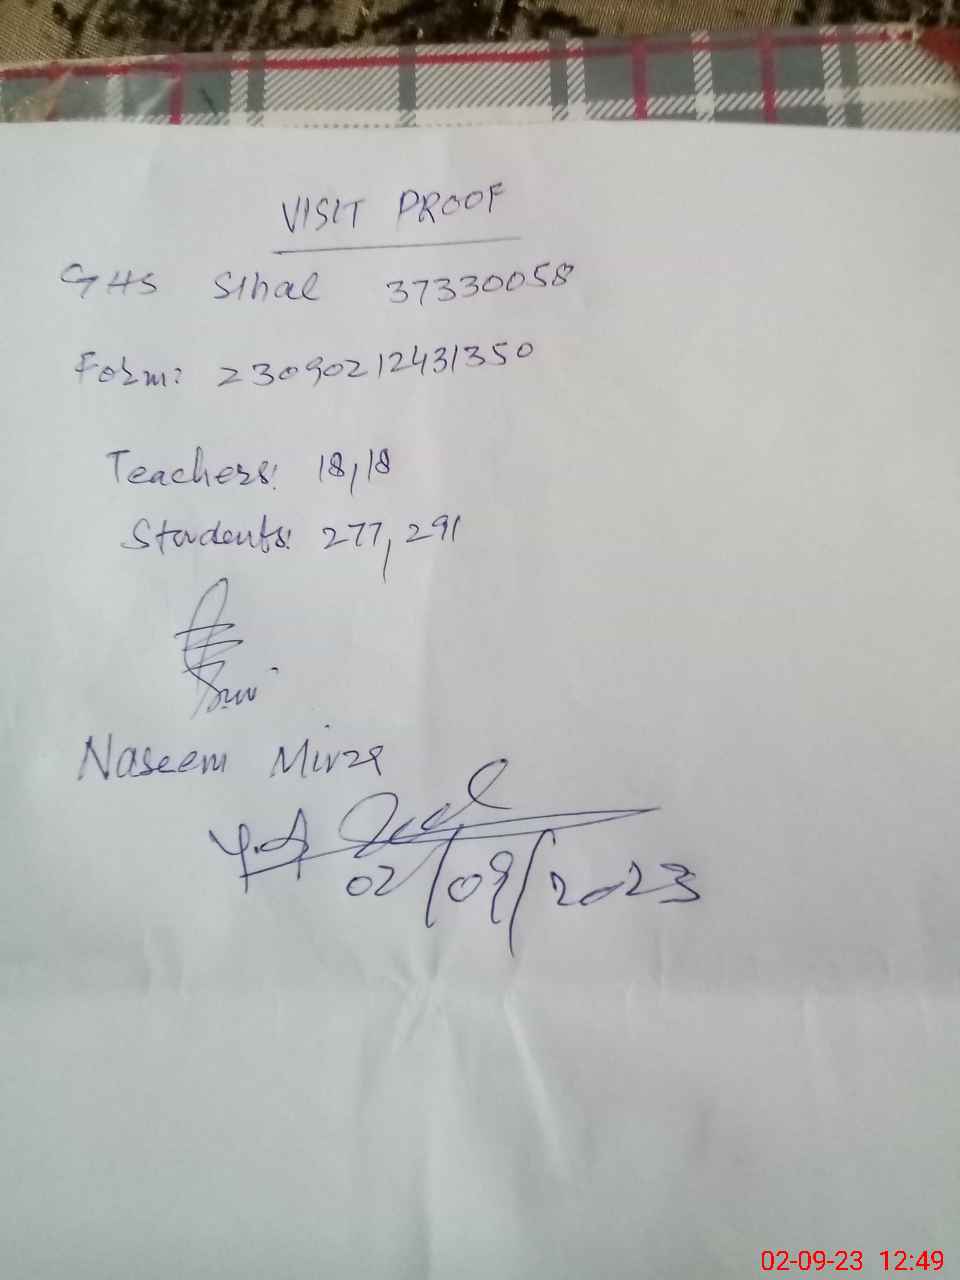 VISIT PROOF
GHS Sihal 37330058
Form: 23090212431350
Teachers: 18,18
Students: 277, 291
Naseem Mirza
02/09/2023
02-09-23 12:49